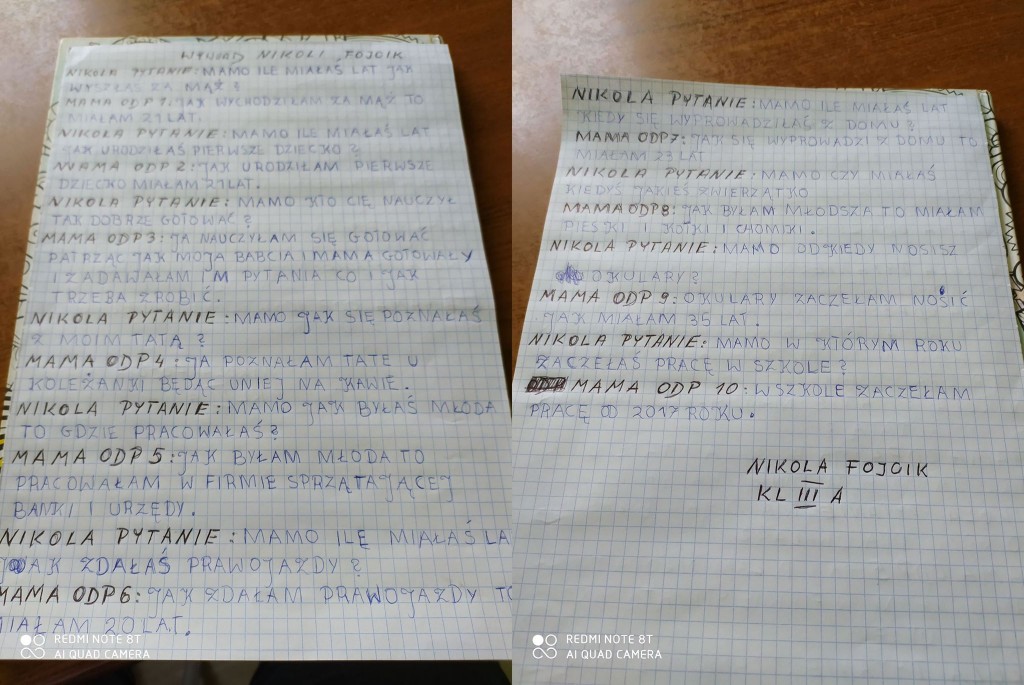 WYWIAD NIKOLI FOJCIK
NIKOLA PYTANIE: MAMO ILE MIAŁAŚ LAT JAK
WYSZŁAŚ ZA MĄŻ?
MAMA ODP 1: JAK WYCHODZIŁAM ZA MĄŻ TO
MIAŁAM 21 LAT.
NIKOLA PYTANIE: MAMO ILE MIAŁAŚ LAT
JAK URODZIŁAŚ PIERWSZE DZIECKO?
MAMA ODP 2: JAK URODZIŁAM PIERWSZE
DZIECKO MIAŁAM 21 LAT.
NIKOLA PYTANIE: MAMO KTO CIĘ NAUCZYŁ
TAK DOBRZE GOTOWAĆ?
MAMA ODP 3: JA NAUCZYŁAM SIĘ GOTOWAĆ
PATRZĄC JAK MOJA BABCIA I MAMA GOTOWAŁY
I ZADAWAŁAM IM PYTANIA CO I JAK
TRZEBA ZROBIĆ.
NIKOLA PYTANIE: MAMO JAK SIĘ POZNAŁAŚ
Z MOIM TATĄ?
MAMA ODP 4: JA POZNAŁAM TATE U
KOLEŻANKI BĘDĄC UNIEJ NA KAWIE.
NIKOLA PYTANIE: MAMO JAK BYŁAŚ MŁODA
TO GDZIE PRACOWAŁAŚ?
MAMA ODP 5: JAK BYŁAM MŁODA TO
PRACOWAŁAM W FIRMIE SPRZĄTAJĄCEJ
BANKI I URZĘDY.
NIKOLA PYTANIE: MAMO ILĘ MIAŁAŚ LA
JAK ZDAŁAŚ PRAWOJAZDY?
MAMA ODP 6: JAK ZDAŁAM PRAWOJAZDY TO
MIAŁAM 20 LAT.
REDMI NOTE 8T
AI QUAD CAMERA
NIKOLA PYTANIE: MAMO ILE MIAŁAŚ LAT
KIEDY SIĘ WYPROWADZIŁAŚ Z DOMU?
MAMA ODP 7: JAK SIĘ WYPROWADZI Z DOMU TO
MIAŁAM 23 LAT
NIKOLA PYTANIE: MAMO CZY MIAŁAŚ
KIEDYŚ JAKIEŚ ZWIERZĄTKO
MAMA ODP 8: JAK BYŁAM MŁODSZA TO MIAŁAM
PIESKI I KOTKI I CHOMIKI.
NIKOLA PYTANIE: MAMO ODKIEDY NOSISZ
OKULARY?
MAMA ODP 9: OKULARY ZACZEŁAM NOSIĆ
JAK MIAŁAM 35 LAT.
NIKOLA PYTANIE: MAMO W KTÓRYM ROKU
ZACZEŁAŚ PRACĘ W SZKOLE?
MAMA ODP 10: WSZKOLE ZACZEŁAM
PRACĘ OD 2017 ROKU.
NIKOLA FOJCIK
KL III A
REDMI NOTE 8T
AI QUAD CAMERA